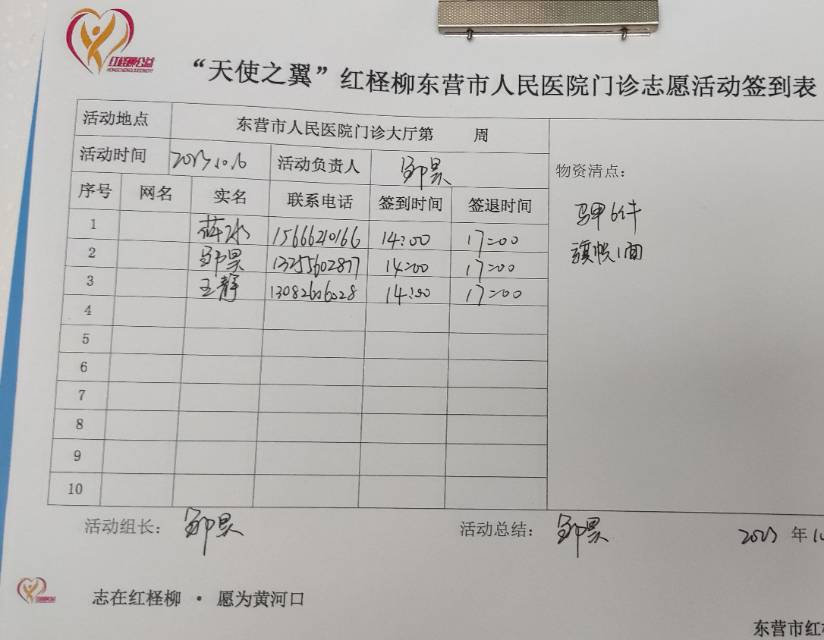 红柽柳公益
“天使之翼”红柽柳东营市人民医院门诊志愿活动签到表
活动地点 东营市人民医院门诊大厅第 周
活动时间 2023.10.6 活动负责人 邹昊
物资清点:
序号 网名 实名 联系电话 签到时间 签退时间
马甲6件
1 15666210166 14:00 17:00
旗帜1面
2 邹昊 13255602877 14:00 17:00
3 王静 13082606028 14:00 17:00
4
5
6
7
8
9
10
活动组长: 邹昊 活动总结: 邹昊 2023 年
志在红柽柳 · 愿为黄河口
东营市红